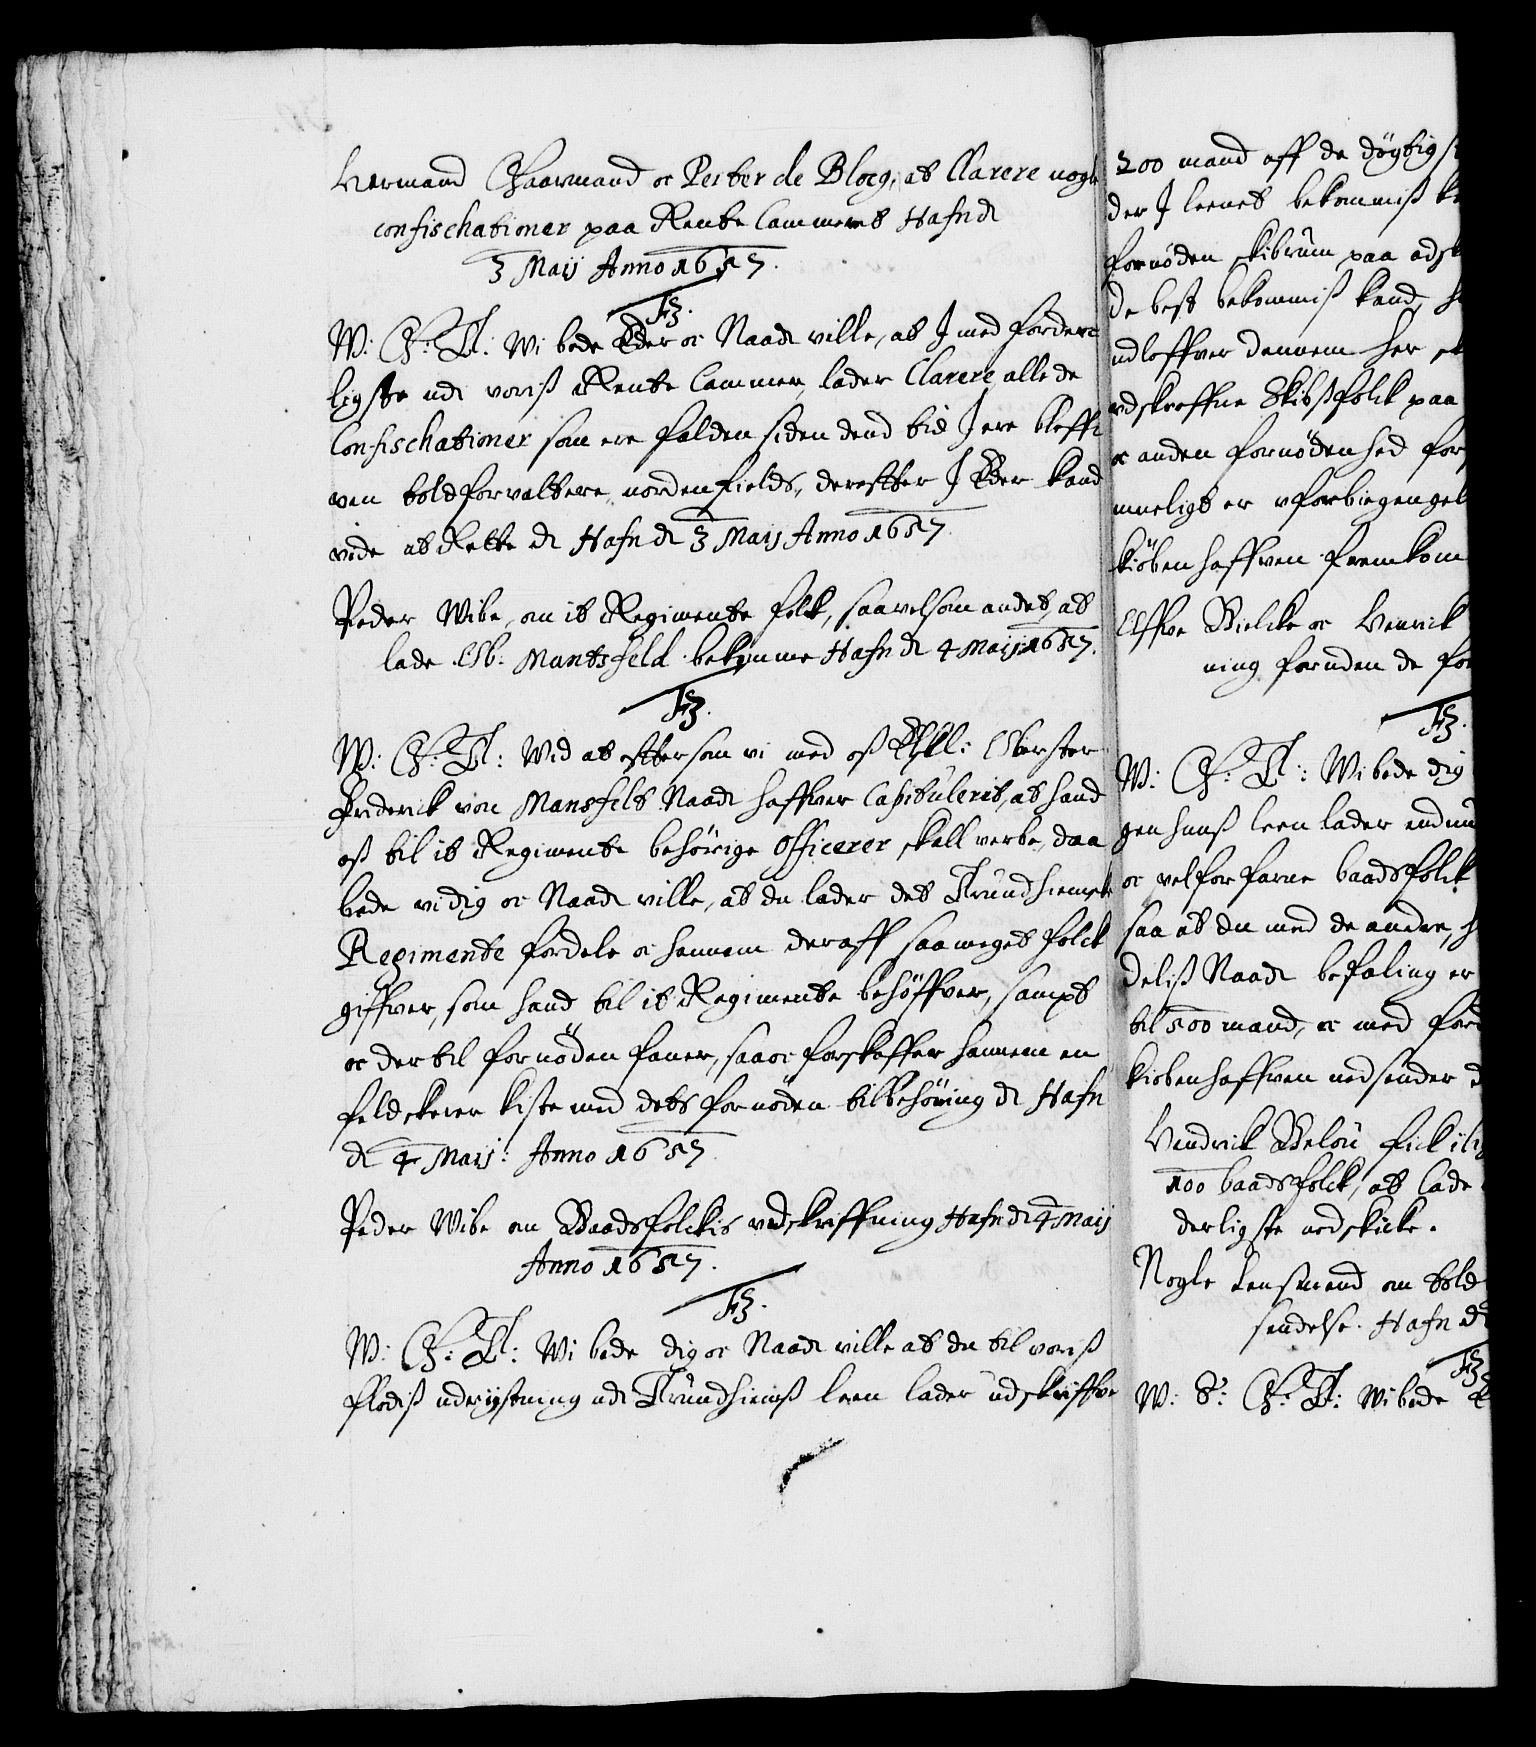 Hermand Gaarmand oc Peiter de Blocq, at Clarere nogle
confischationer paa Rente Cammerit Hafn d
3 Maij Anno 1657.
F3.
W: G: T: Wi bede Eder oc Naad: ville, at J med forder-
ligste udi voris Rente Cammer, lader Clarere alle de
Confischationer som ere falden siden dend tid J ere bleff-
ven toldforvaltere nordenfields, derefter J Eder kand
vide at Rette dt Hafn d 3 Maij Anno 1657
Peder Wibe, om it Regimente folk, saavelsom andet, at
lade Ob: Mantsfeld bekomme Hafn d 4 Maij 1657.
F3.
W: G: T: Wid at eftersom vi med os Elskl: Oberster
Friderick von Mansfelt Naad: haffver Capituleret, at hand
os til it Regimente behørige Officerer skall verbe, daa
bede vi dig oc Naad: ville, at du lader det Trundhiemske
Regimente fordele oc hannem deraff saa meget folck
giffver, som hand til it Regimente behöffver, sampt
oc der til fornöden faner, saa oc forskaffer hannem en
feldskerer kiste med dets fornöden tilbehöring dt Hafn
d 4 Maij: Anno 1657
Peder Wibe om Baadsfolckis udskriffning Hafn d 4 Maij
Anno 1657.
F3.
W: G: T: Wi bede dig oc Naad: ville at du til voris
flodis udrystning udi Trundhiems leen lader udskriffve
200 mand aff de dögtigs
der J leenet bekommis k
fornöden skibrum paa
de best bekommis kand, h
udloffver dennem her
udskreffne Skibsfolck paa
oc anden fornödenhed for
mueligt er uforbiegengel
kiöbenhaffven fremkom
Offve Bielcke oc Henrick
ning foruden de for
F3.
W: G: T: Wi bede dig
gen hans leen lader endnu
oc velforfarne baadsfolck
saa at du med de andre, h
delis Naad: befaling er
til 500 mand, oc med ford
kiobenhaffven nedsender d
Hendrick Belou fick i lig
100 baadsfolck, at lade
derligste nedskicke.
Nogle Lensmend om told
sendelse. Hafn d
F3
W: S: G: T: Wi bede E